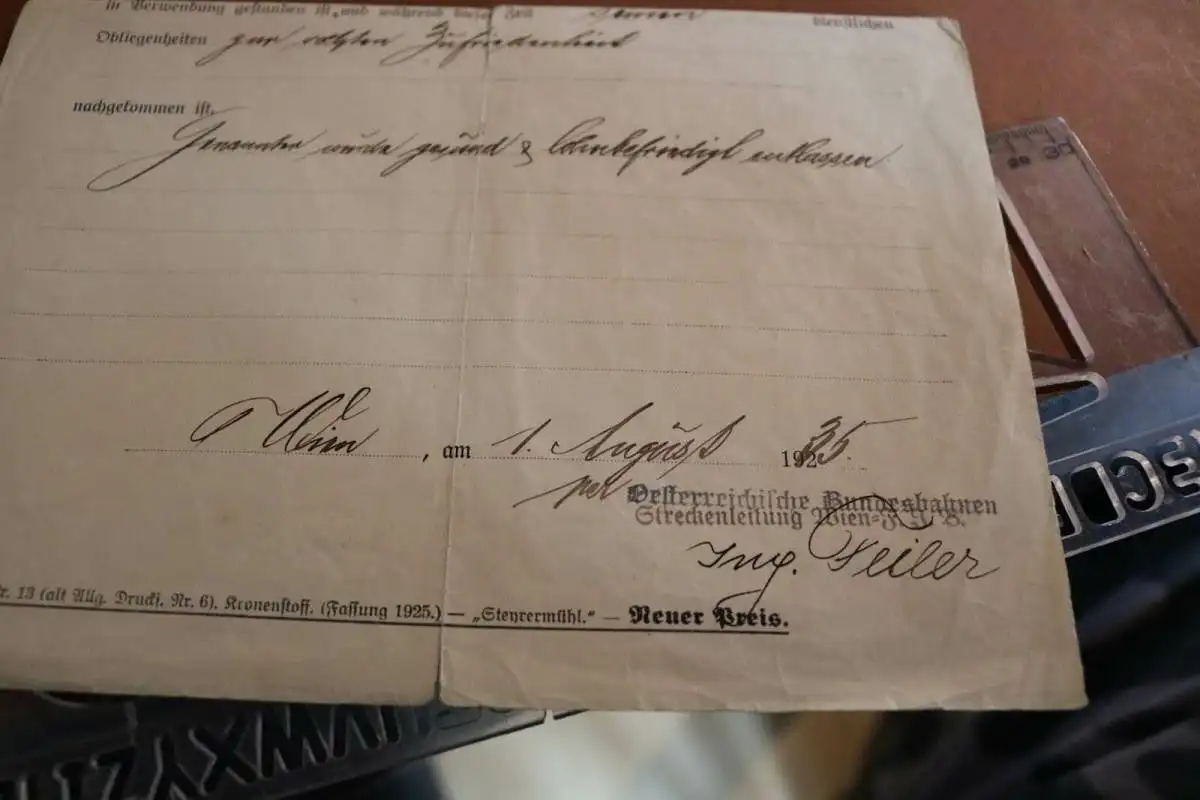 in Verwendung gestanden ist, und während dieser Zeit seinen dienstlichen
Obliegenheiten zur vollsten Zufriedenheit
nachgekommen ist.
Genannter wurde gesund & lohnbefriedigt entlassen
Wien, am 1. August 1925.
per Oesterreichische Bundesbahnen
Streckenleitung Wien=F.J.B.
Ing. Feiler
r. 13 (alt Allg. Drucks. Nr. 6). Kronenstoff. (Fassung 1925.) — „Steyrermühl." — Neuer Preis.
30